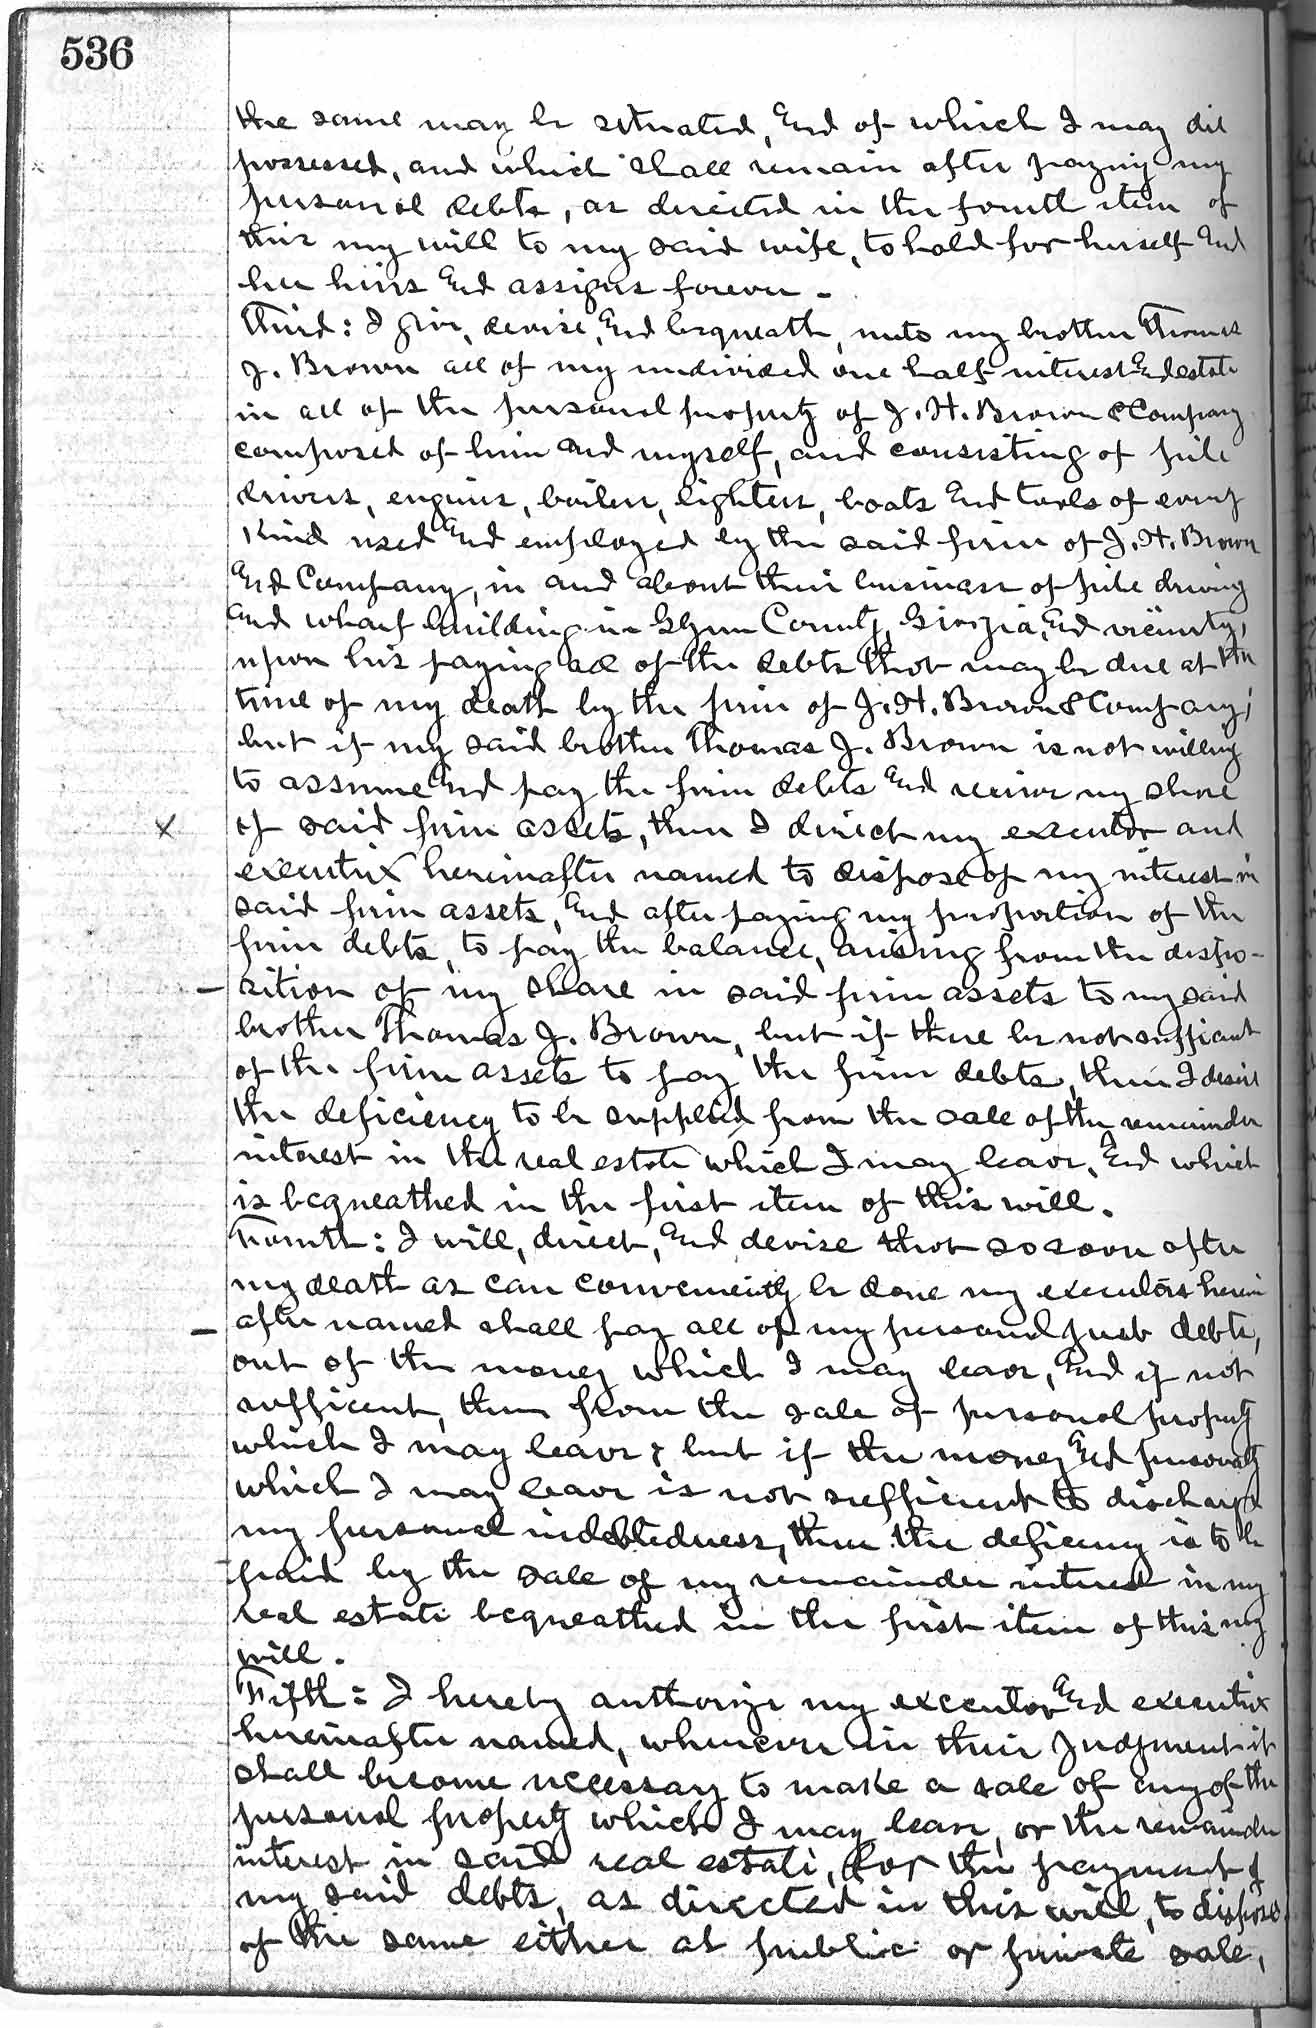 536
the same may be situated, and of which I may die
possessed, and which shall remain after paying my
personal debts, as directed in the fourth item of
this my will to my said wife, to hold for herself and
her heirs and assigns forever.
Third: I give, devise, and bequeath, unto my brother Thomas
J. Brown all of my undivided one half interest and estate
in all of the personal property of J. H. Brown & Company
composed of him and myself, and consisting of pile
drivers, engines, boilers, lighters, boats and tools of every
kind used and employed by the said firm of J. H. Brown
and Company, in and about their business of pile driving
and wharf building in Glynn County, Georgia, and vicinity,
upon his paying all of the debts that may be due at the
time of my death by the firm of J. H. Brown & Company;
but if my said brother Thomas J. Brown is not willing
to assume and pay the firm debts and receive my share
x of said firm assets, then I direct my executor and
executrix hereinafter named to dispose of my interest in
said firm assets, and after paying my proportion of the
firm debts, to pay the balance, arising from the dispo-
- sition of my share in said firm assets to my said
brother Thomas J. Brown, but if there be not sufficient
of the firm assets to pay the firm debts, then I desire
the deficiency to be supplied from the sale of the remainder
interest in the real estate which I may leave, and which
is bequeathed in the first item of this will.
Fourth: I will, direct, and devise that so soon after
my death as can conveniently be done my executors herein
- after named shall pay all of my personal just debts,
out of the money which I may leave, and if not
sufficient, then from the sale of personal property
which I may leave; but if the money and personalty
which I may leave is not sufficient to discharge
my personal indebtedness, then the deficiency is to be
paid by the sale of my remainder interest in my
real estate bequeathed in the first item of this my
will.
Fifth: I hereby authorize my executor and executrix
hereinafter named, whenever in their Judgment it
shall become necessary to make a sale of any of the
personal property which I may leave, or the remainder
interest in said real estate, for the payment of
my said debts, as directed in this will, to dispose
of the same either at public or private sale,